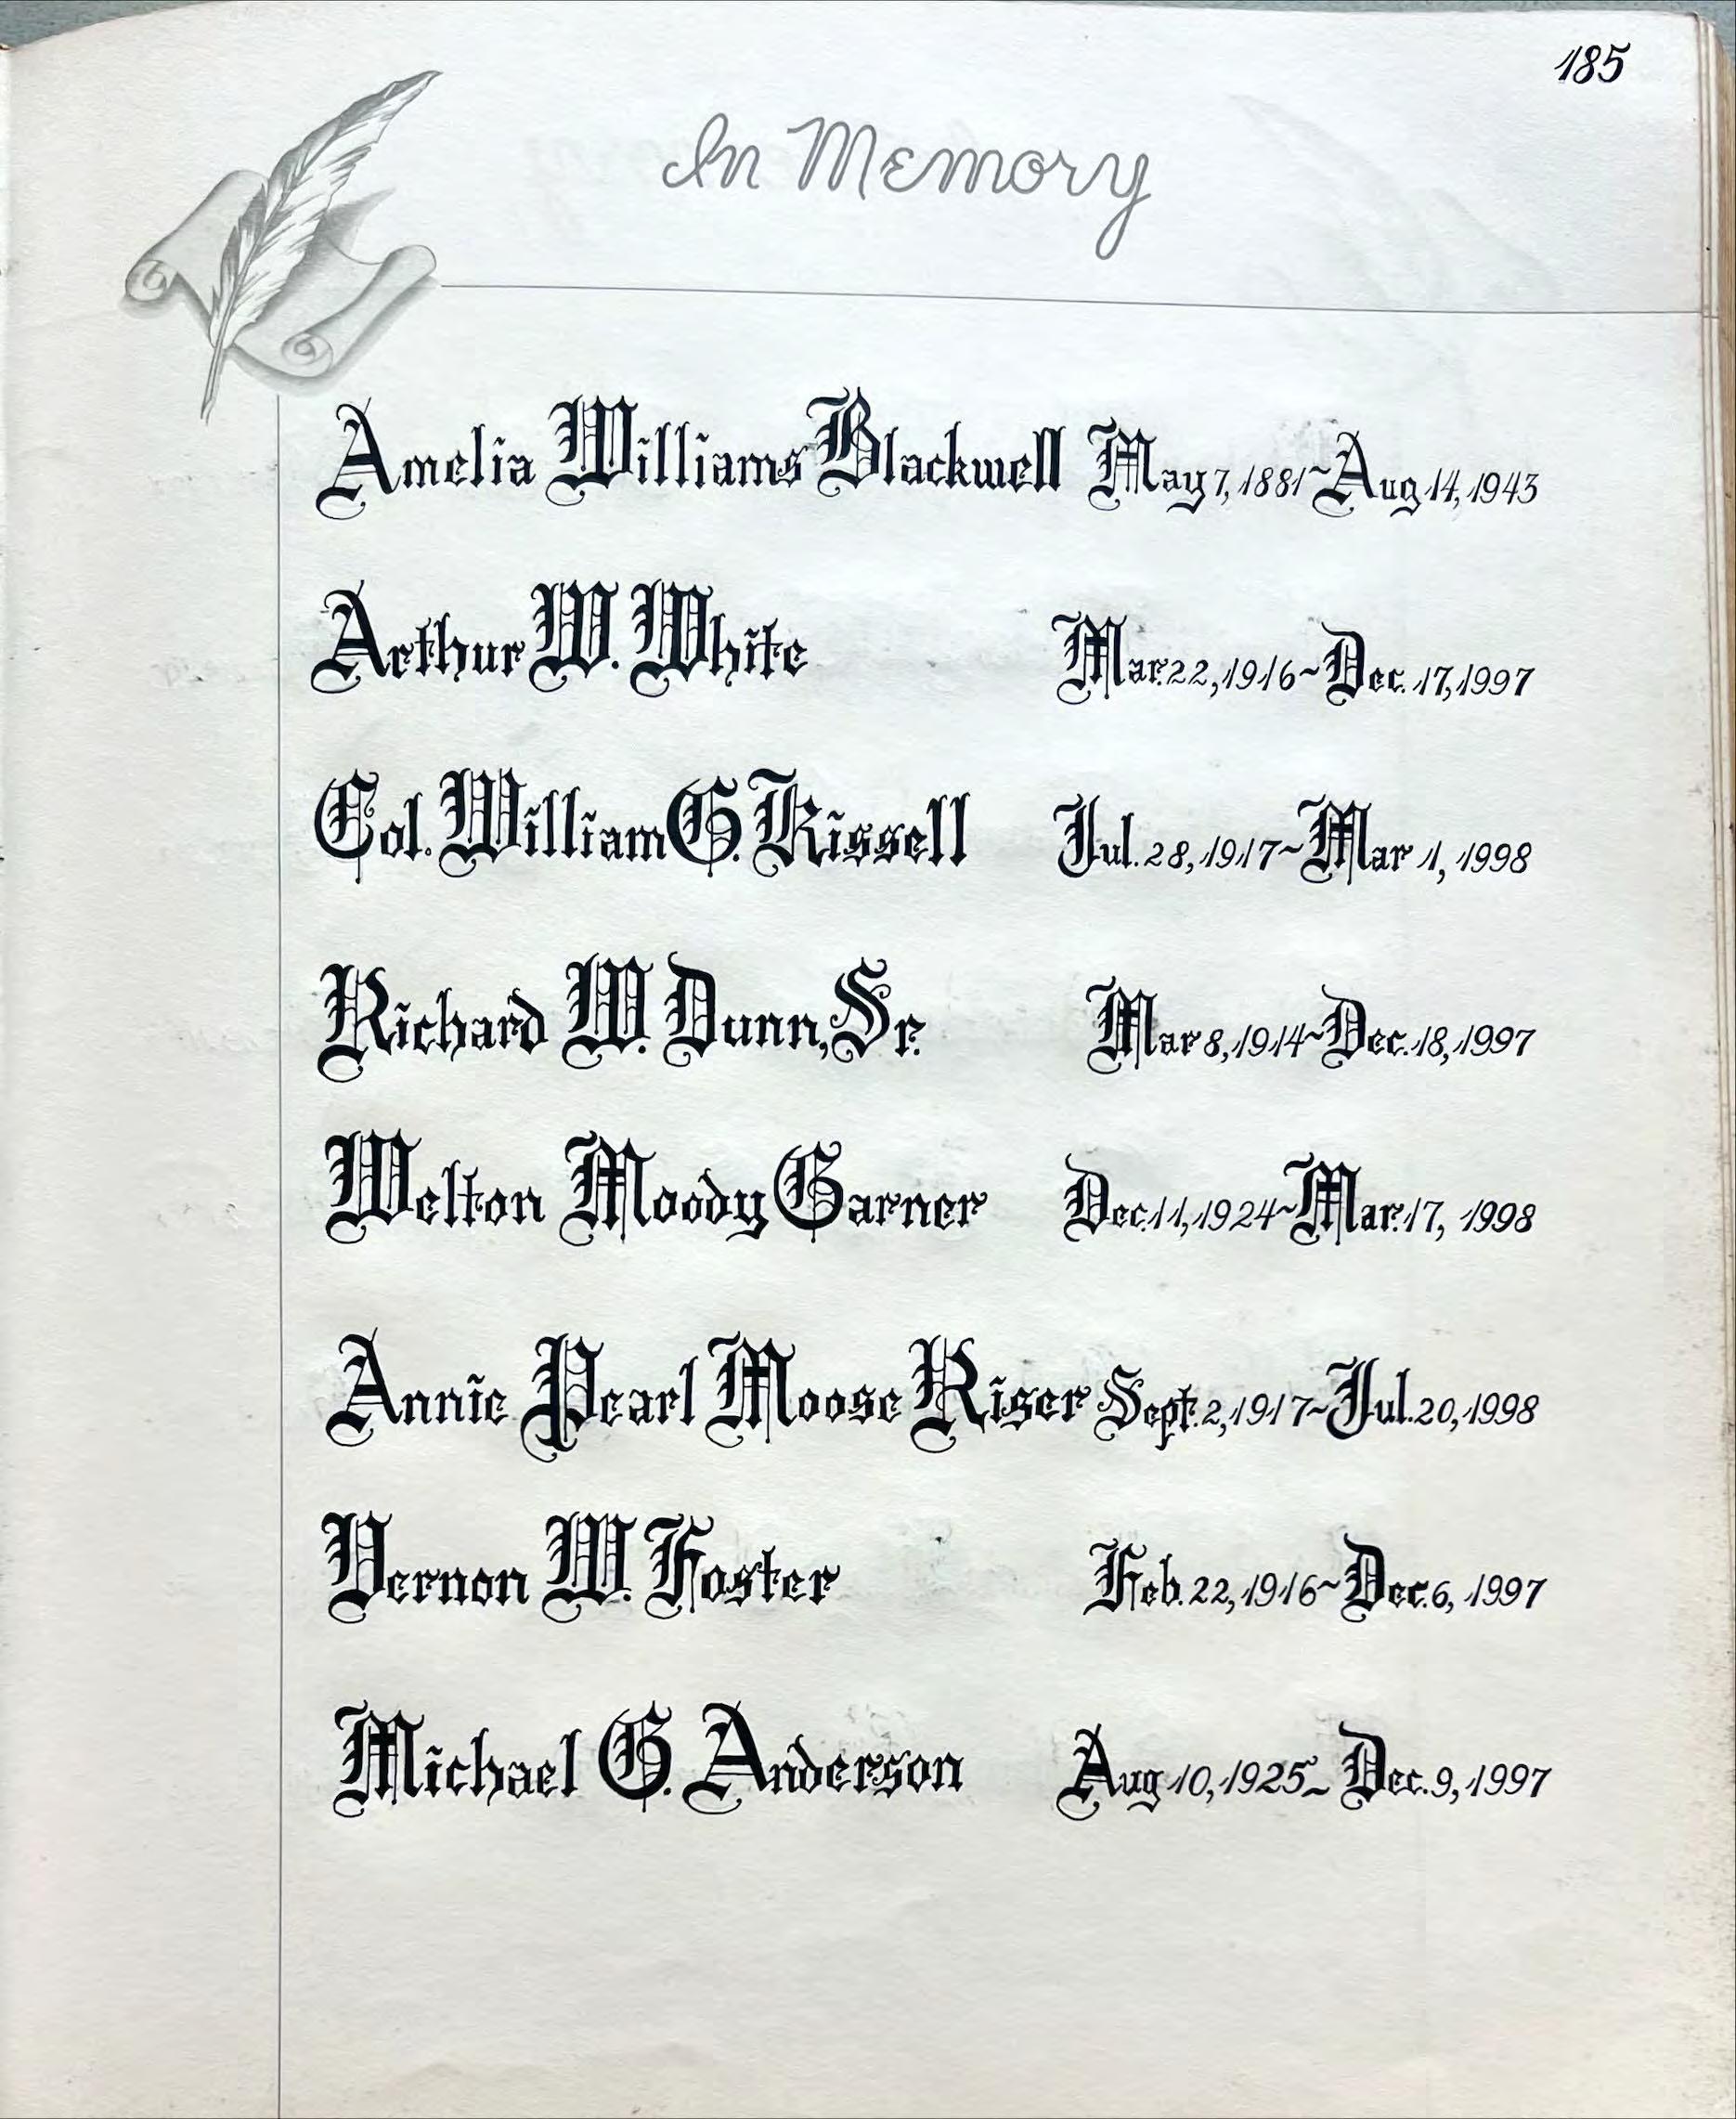 185
In Memory
Amelia Williams Blackwell May 7, 1881~Aug 14, 1943
Arthur W. White Mar. 22, 1916~Dec. 17, 1997
Col. William G. Kissell Jul. 28, 1917~Mar 1, 1998
Richard W. Dunn, Sr. Mar 8, 1914~Dec. 18, 1997
Welton Moody Garner Dec. 11, 1924~Mar. 17, 1998
Annie Pearl Moose Riser Sept. 2, 1917~Jul. 20, 1998
Vernon W. Foster Feb. 22, 1916~Dec. 6, 1997
Michael G. Anderson Aug 10, 1925~ Dec. 9, 1997